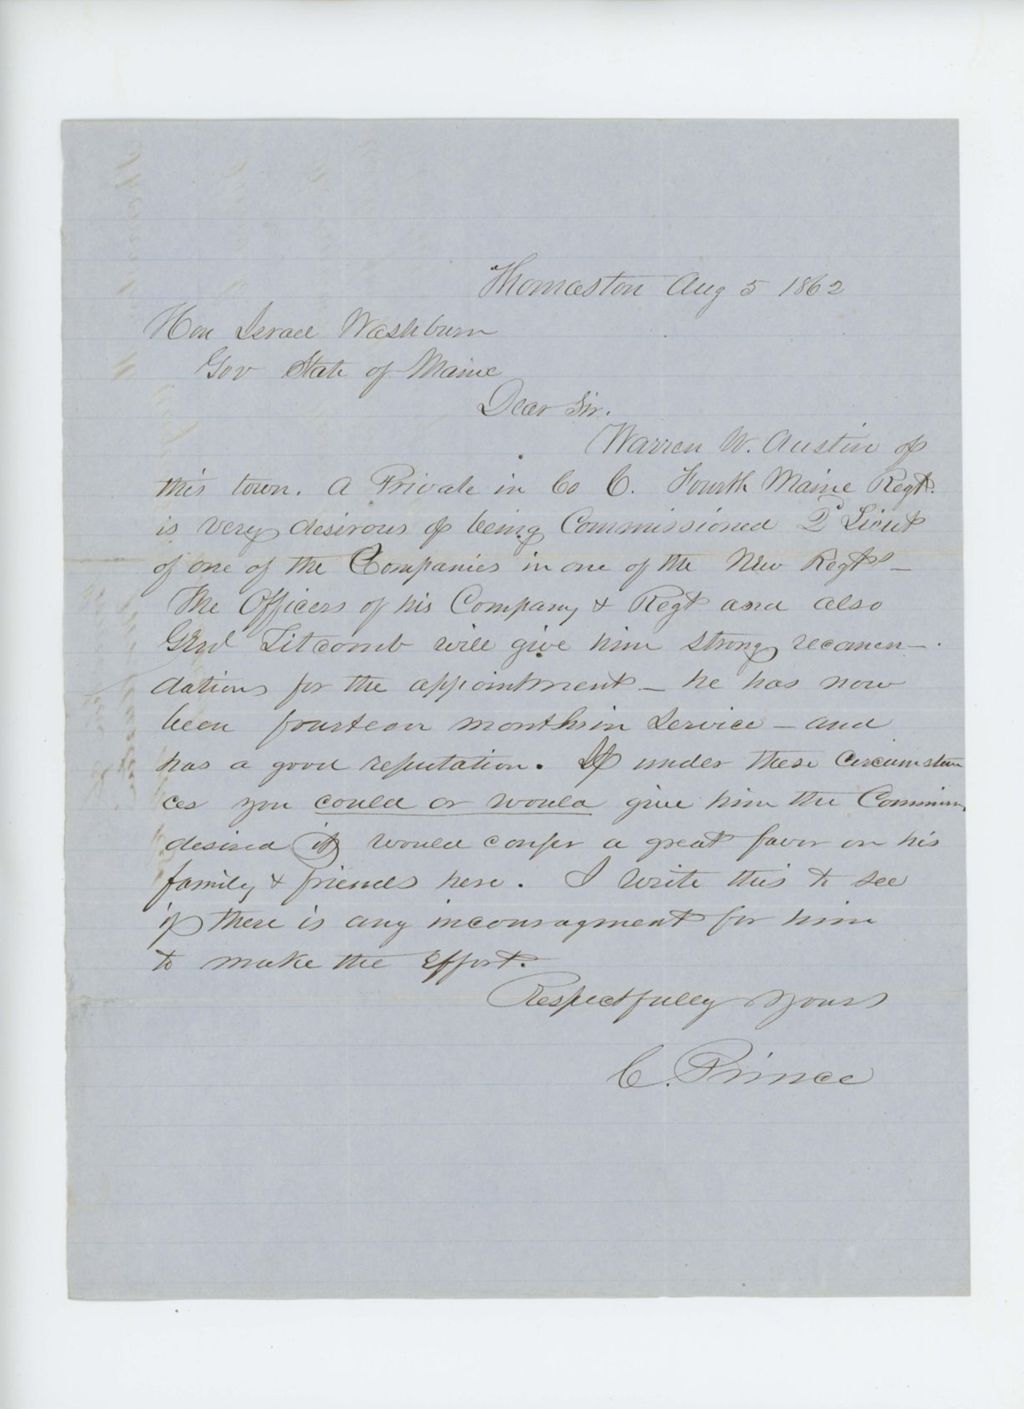 Thomaston Aug 5 1862
Hon Israel Washburn
Gov State of Maine
Dear Sir.
Warren W. Austin of
this town. A Private in Co C. Fourth Maine Regt.
is very desirous of being Commissioned 2d Lieut
of one of the Companies in one of the New Regts -
The Officers of his Company & Regt and also
Genl Titcomb will give him strong recomen-
dations for the appointment - he has now
been fourteen months in Service - and
has a good reputation. If under these circumstan
ces you could or would give him the Commission
desired it would confer a great favor on his
family & friends here. I write this to see
if there is any incouragment for him
to make the Effort.
Respectfully Yours
C. Prince